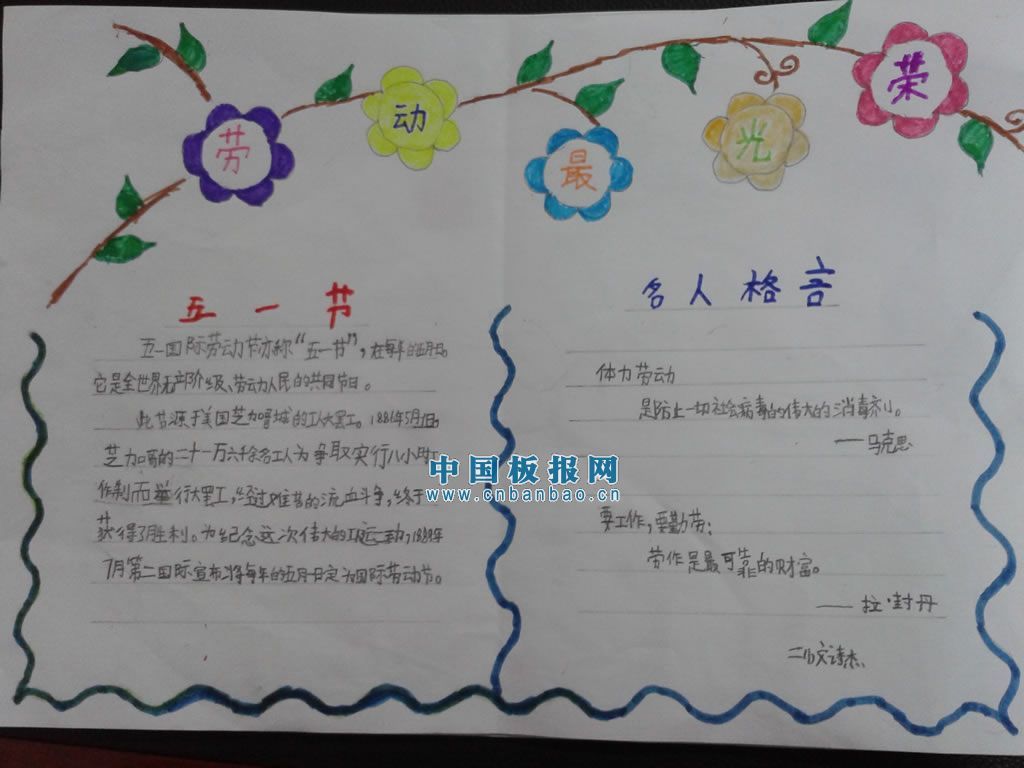 劳动最光荣
五一节
五一国际劳动节亦称“五一节”，在每年的五月一日。
它是全世界无产阶级、劳动人民的共同节日。
此节源于美国芝加哥城的工人大罢工。1886年5月1日，
芝加哥的二十一万六千余名工人为争取实行八小时工
作制而举行大罢工，经过艰苦的流血斗争，终于
获得了胜利。为纪念这次伟大的工人运动，1889年
7月第二国际宣布将每年的五月一日定为国际劳动节。
名人格言
体力劳动
是防止一切社会病毒的伟大的消毒剂。
——马克思
要工作，要勤劳：
劳作是最可靠的财富。
——拉·封丹
中国板报网
www.cnbanbao.cn